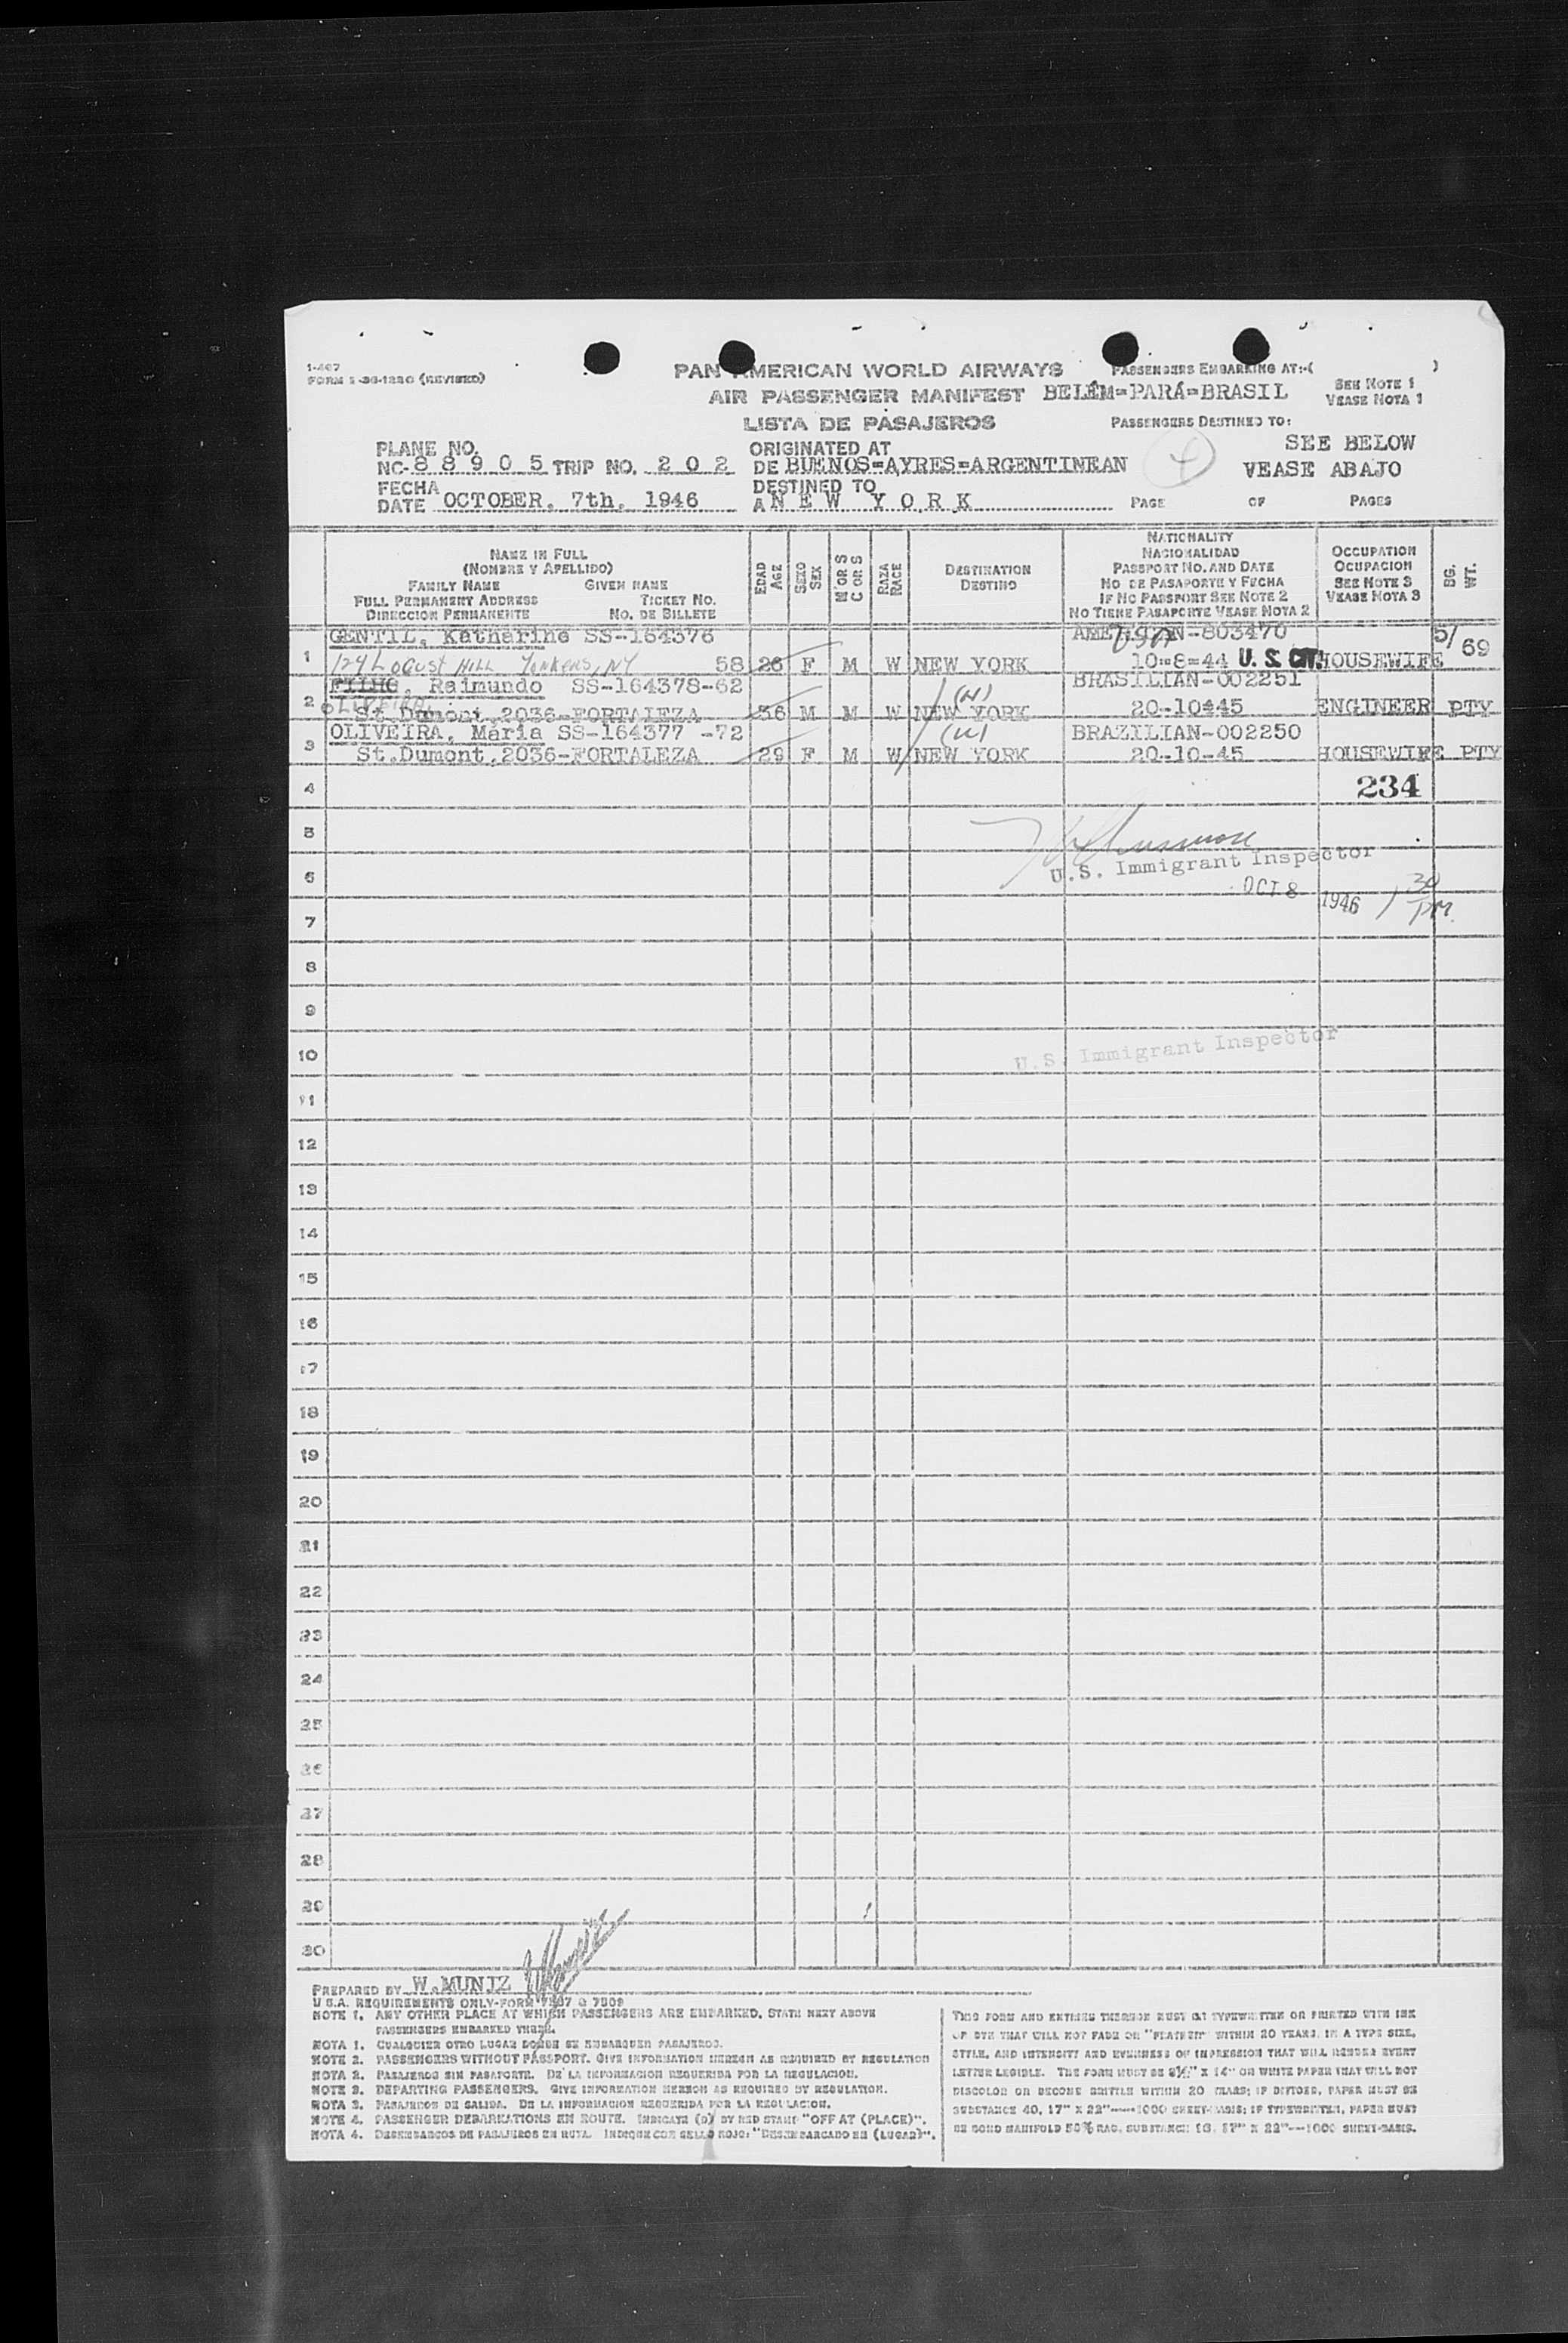 1-467
FORM I-36-1220 (REVISED)
PAN AMERICAN WORLD AIRWAYS
PASSENGERS EMBARKING AT:-( )
AIR PASSENGER MANIFEST BELÉM=PARÁ=BRASIL
SEE NOTE 1
VEASE NOTA 1
LISTA DE PASAJEROS
PASSENGERS DESTINED TO:
PLANE NO.
NC-88905 TRIP NO. 202
ORIGINATED AT
DE BUENOS=AYRES=ARGENTINEAN
4
SEE BELOW
VEASE ABAJO
FECHA
DATE OCTOBER. 7th, 1946
DESTINED TO
A NEW YORK
PAGE OF PAGES
NAME IN FULL
(NOMBRE Y APELLIDO)
FAMILY NAME GIVEN NAME
FULL PERMANENT ADDRESS TICKET NO.
DIRECCION PERMANENTE NO. DE BILLETE
EDAD
AGE
SEXO
SEX
M OR S
C OR S
RAZA
RACE
DESTINATION
DESTINO
NATIONALITY
NACIONALIDAD
PASSPORT NO. AND DATE
NO DE PASAPORTE Y FECHA
IF NO PASSPORT SEE NOTE 2
NO TIENE PASAPORTE VEASE NOTA 2
OCCUPATION
OCUPACION
SEE NOTE 3
VEASE NOTA 3
BG.
WT.
1 GENTIL, Katharine SS-164376 AMERICAN-803470 USA 5/69
124 Locust Hill Yonkers, NY 58 26 F M W NEW YORK 10=8=44 U. S. CIT. HOUSEWIFE
2 FILHO, Raimundo SS-164378-62 (N) BRASILIAN-002251
OLIVEIRA,
St.Dumont,2036-FORTALEZA 36 M M W NEW YORK 20-10445 ENGINEER PTY
3 OLIVEIRA, Mária SS-164377 -72 (N) BRAZILIAN-002250
St.Dumont,2036-FORTALEZA 29 F M W NEW YORK 20-10-45 HOUSEWIFE PTY
4 234
5
U.S. Immigrant Inspector
6
OCT 8 1946 1 30 PM.
7
8
9
10 U.S. Immigrant Inspector
11
12
13
14
15
16
17
18
19
20
21
22
23
24
25
26
27
28
29
30
PREPARED BY W.MUNIZ
U.S.A. REQUIREMENTS ONLY-FORM 7507 & 7509
NOTE 1. ANY OTHER PLACE AT WHICH PASSENGERS ARE EMBARKED, STATE NEXT ABOVE
PASSENGERS EMBARKED THERE.
NOTA 1. CUALQUIER OTRO LUGAR DONDE SE EMBARQUEN PASAJEROS.
NOTE 2. PASSENGERS WITHOUT PASSPORT. GIVE INFORMATION HEREON AS REQUIRED BY REGULATION
NOTA 2. PASAJEROS SIN PASAPORTE. DE LA INFORMACION REQUERIDA POR LA REGULACION.
NOTE 3. DEPARTING PASSENGERS. GIVE INFORMATION HEREON AS REQUIRED BY REGULATION.
NOTA 3. PASAJEROS DE SALIDA. DE LA INFORMACION REQUERIDA POR LA REGULACION.
NOTE 4. PASSENGER DEBARKATIONS EN ROUTE. INDICATE (D) BY RED STAMP "OFF AT (PLACE)".
NOTA 4. DESEMBARCOS DE PASAJEROS EN RUTA. INDIQUE CON SELLO ROJO: "DESEMBARCADO EN (LUGAR)".
THIS FORM AND ENTRIES THEREON MUST BE TYPEWRITTEN OR PRINTED WITH INK
OF DYE THAT WILL NOT FADE OR "FEATHER" WITHIN 20 YEARS, IN A TYPE SIZE,
STYLE, AND INTENSITY AND EVENNESS OF IMPRESSION THAT WILL RENDER EVERY
LETTER LEGIBLE. THE FORM MUST BE 8½" X 14" OR WHITE PAPER THAT WILL NOT
DISCOLOR OR BECOME BRITTLE WITHIN 20 YEARS; IF DITTOED, PAPER MUST BE
SUBSTANCE 40, 17" X 22"----1000 SHEET-BASIS; IF TYPEWRITTEN, PAPER MUST
BE BOND MANIFOLD 50% RAG, SUBSTANCE 16, 17" X 22"---1000 SHEET-BASIS.